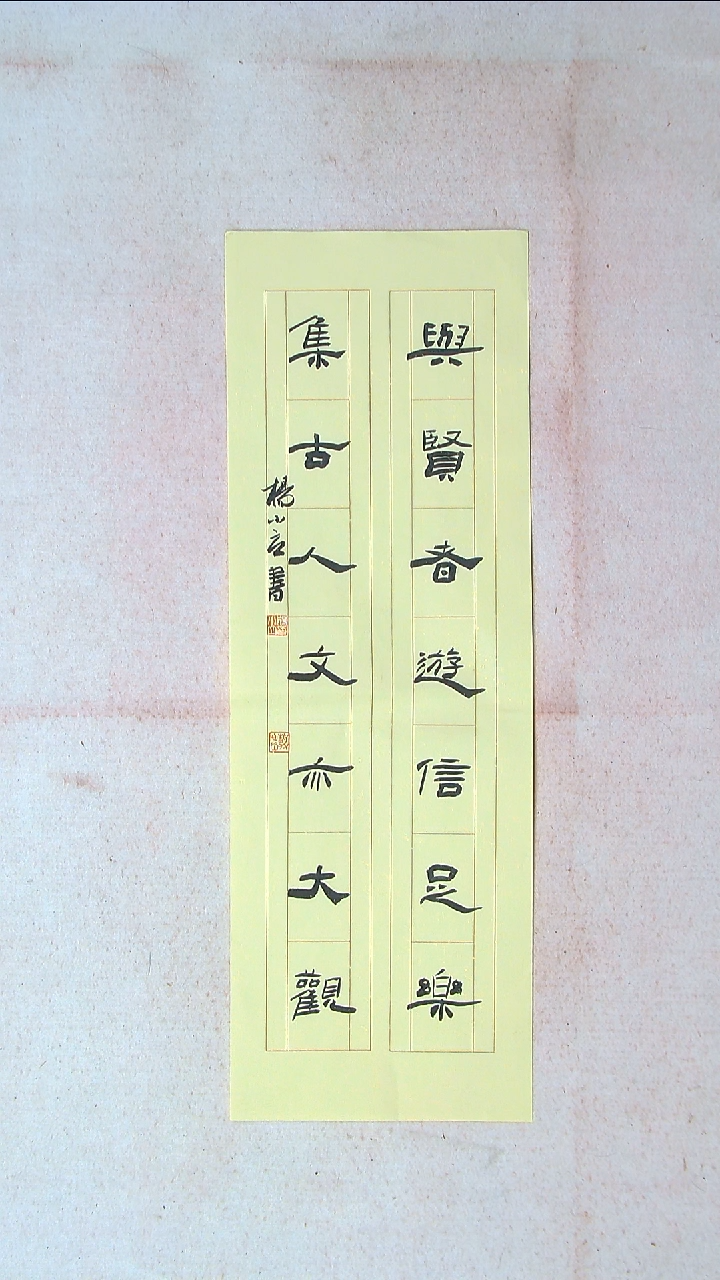 與賢者遊信足樂
集古人文亦大觀
楊小
書